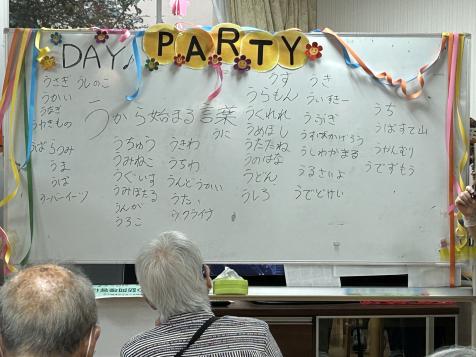 DAY♪ PARTY
うから始まる言葉
うさぎ
うしのこ
うかい
うなぎ
うやきもの
うばらつみ
うま
うば
ウーバーイーツ
うちゅう
うみねこ
うぐいす
うみほたる
うんが
うろこ
うきわ
うちわ
うんどうかい
うた
ウクライナ
うに
うす
うらもん
うくれれ
うめぼし
うたたね
うのはな
うどん
うしろ
うき
ういすきー
うぶぎ
うすばかげろう
うしわかまる
うるさいよ
うでどけい
うち
うばすて山
うやんむり
うでずもう